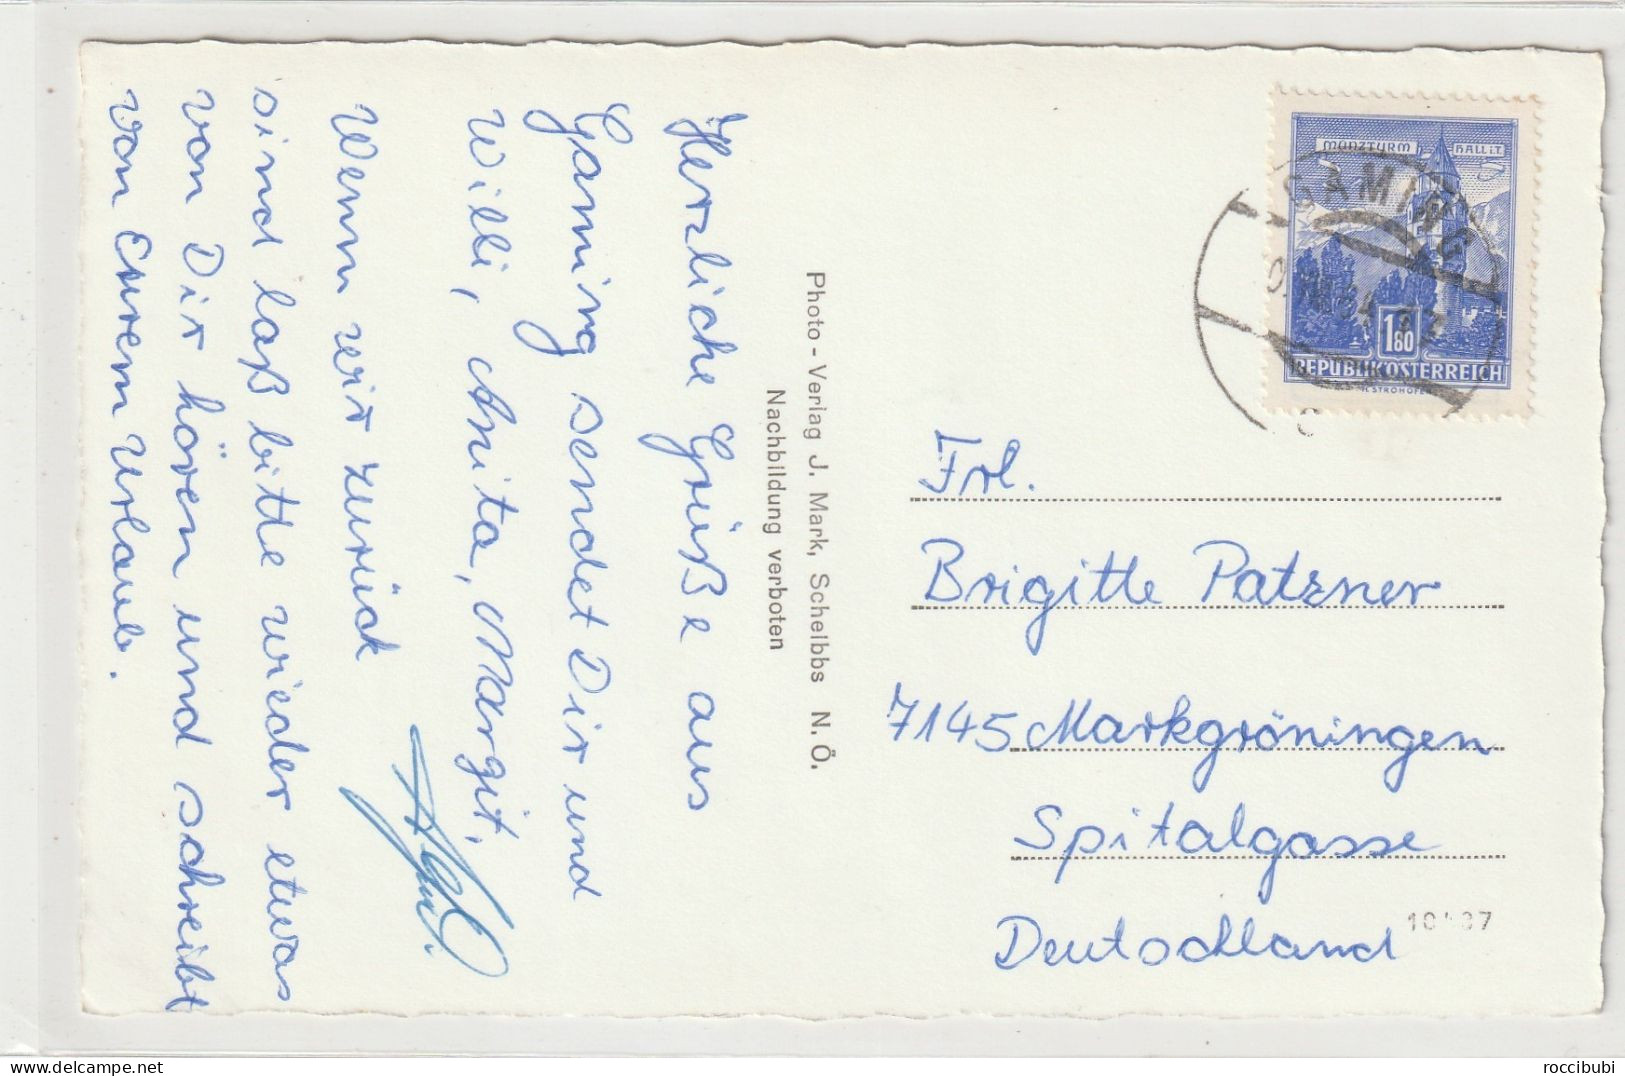 Herzliche Grüße aus
Gaming sendet Dir und
Willi, Anita, Margit,
Wenn wir zurück
sind laß bitte wieder etwas
von Dir hören und schreibt
von Eurem Urlaub.
Photo - Verlag J. Mark, Scheibbs N. Ö.
Nachbildung verboten
MÜNZTURM HALL i.T.
GAMING
1.80
REPUBLIK ÖSTERREICH
Frl.
Brigitte Patzner
7145 Markgröningen
Spitalgasse
Deutschland
roccibubi